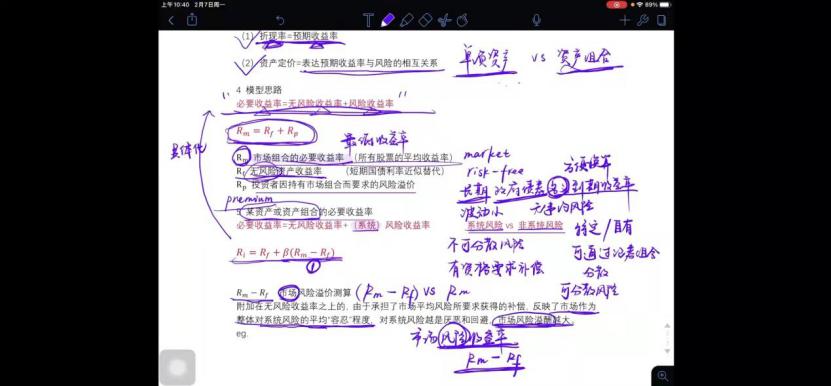 上午10:40 2月7日周一
89%
(1) 折现率=预期收益率
(2) 资产定价=表达预期收益率与风险的相互关系
单项资产 vs 资产组合
4 模型思路
必要收益率=无风险收益率+风险收益率
具体化
Rm = Rf + Rp
最低收益率
Rm 市场组合的必要收益率 (所有股票的平均收益率) market
Rf 无风险资产收益率 (短期国债利率近似替代) risk-free
Rp 投资者因持有市场组合而要求的风险溢价
长期 政府债券 到期收益率
premium
波动小
5 某资产或资产组合的必要收益率
必要收益率=无风险收益率+ (系统) 风险收益率
系统风险 vs 非系统风险
特定/具有
不可分散风险
Ri = Rf + β(Rm − Rf)
①
有资格要求补偿
可通过 组合
分散
可分散风险
Rm − Rf 市场风险溢价测算 (Rm − Rf) vs Rm
附加在无风险收益率之上的,由于承担了市场平均风险所要求获得的补偿,反映了市场作为
整体对系统风险的平均“容忍”程度,对系统风险越是厌恶和回避,市场风险溢酬越大。
eg.
市场风险收益率
Rm − Rf